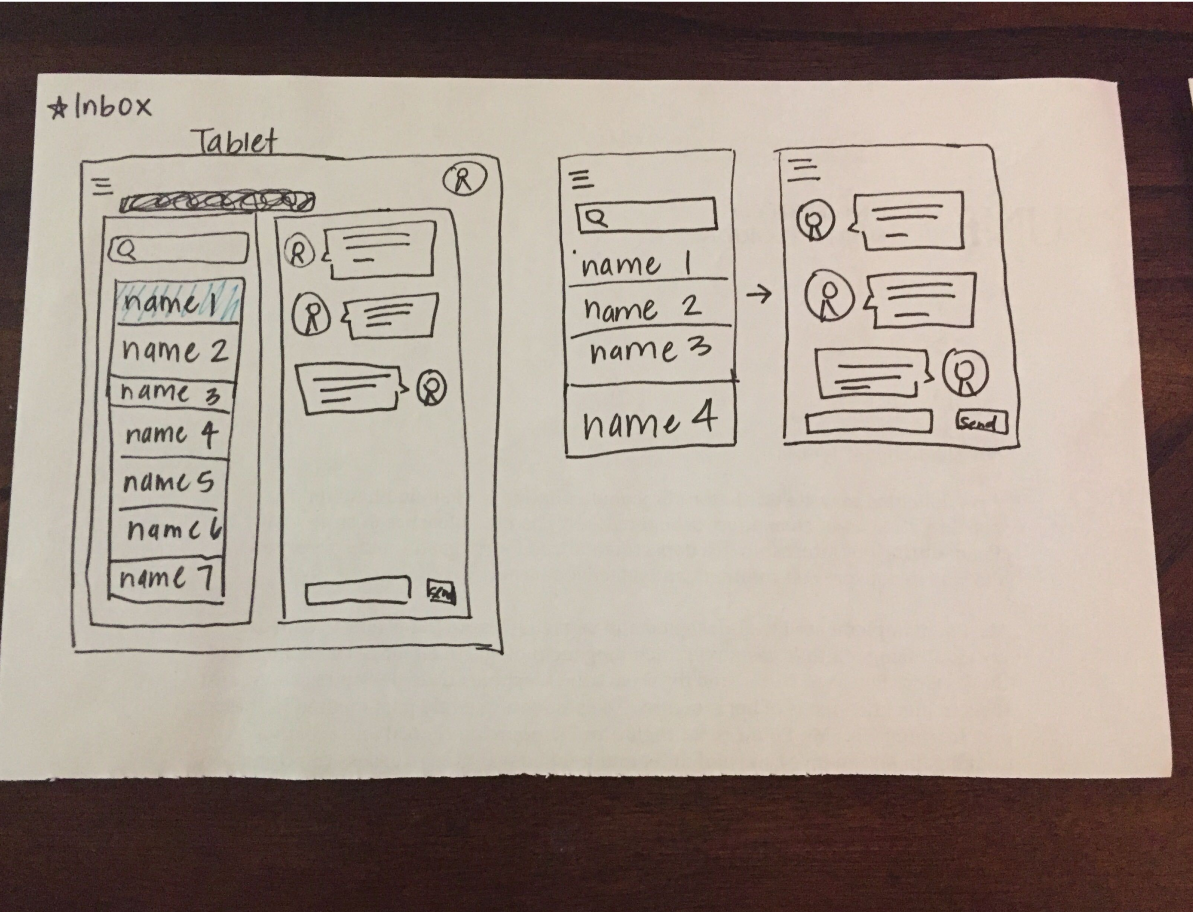 ☆Inbox
Tablet
name 1
name 2
name 3
name 4
name 5
name 6
name 7
send
name 1
name 2
name 3
name 4
send